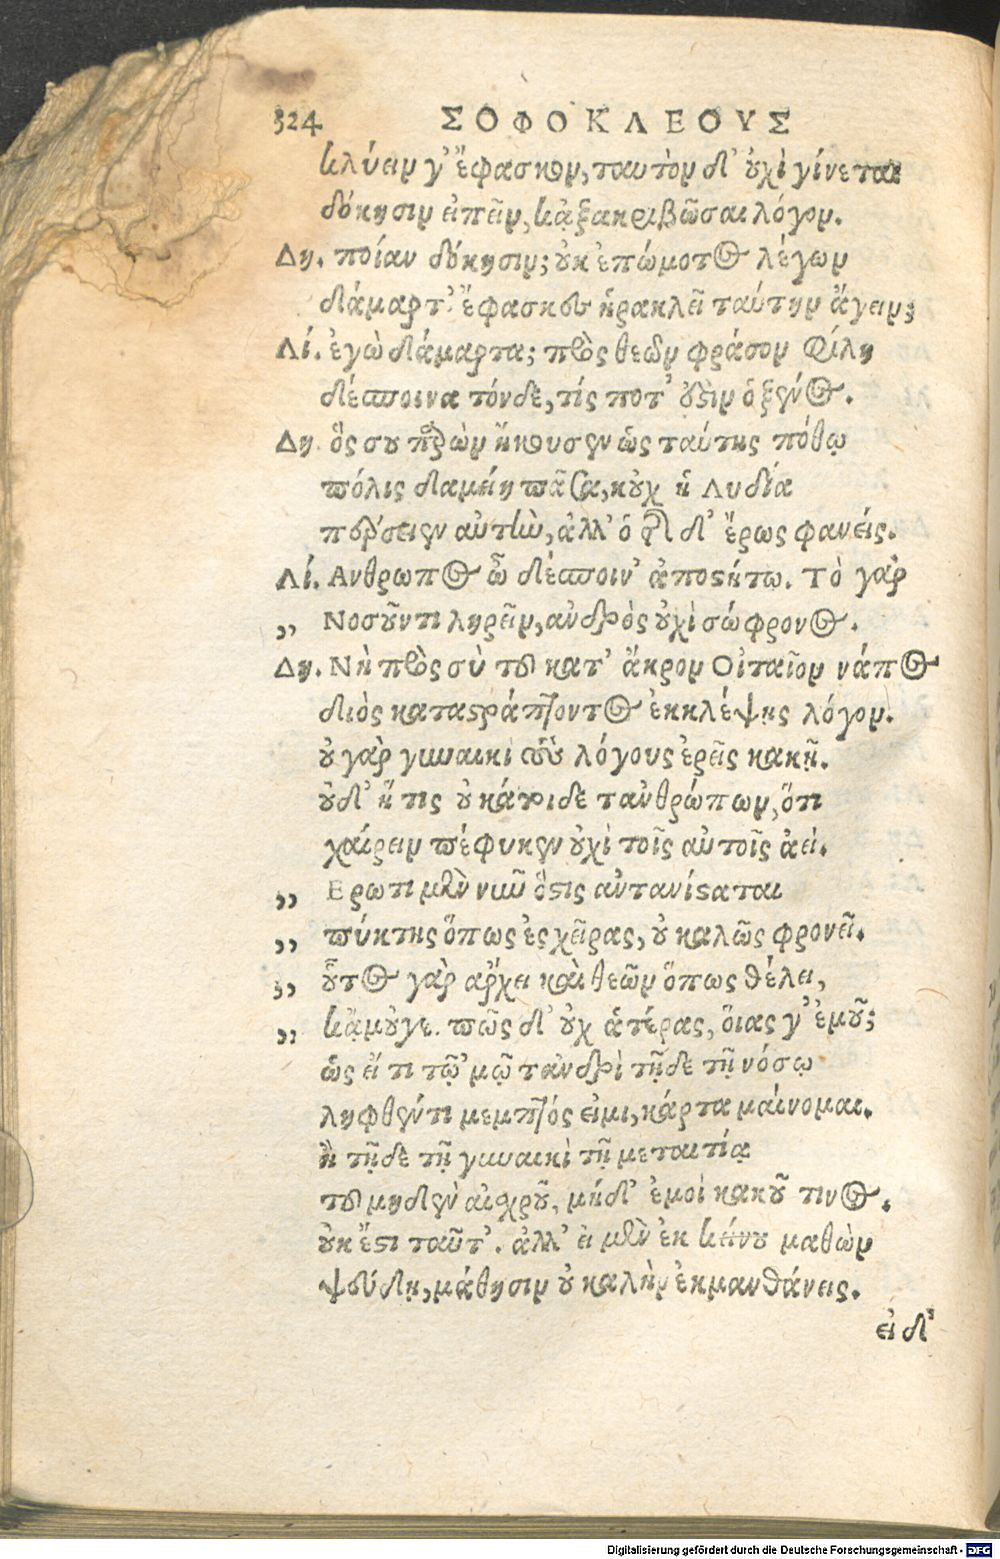 324 ΣΟΦΟΚΛΕΟΥΣ
κλύειν γ' ἔφασκον, ταυτὸν δ' οὐχὶ γίνεται
δόκησιν εἰπεῖν, κἀξακριβῶσαι λόγον.
Δη. ποίαν δόκησιν; οὐκ ἐπώμοτος λέγων
δάμαρτ' ἔφασκες ἡρακλεῖ ταύτην ἄγειν;
Λί. ἐγὼ δάμαρτα; πρὸς θεῶν φράσον φίλη
δέσποινα τόνδε, τίς ποτ' ἐστὶν ὁ ξένος.
Δη. ὃς σου παρὼν ἤκουσεν ὡς ταύτης πόθῳ
πόλις δαμείη πᾶσα, κοὐχ ἡ Λυδία
πέρσειεν αὐτὴν, ἀλλ' ὁ τῆσδ' ἔρως φανείς.
Λί. Ανθρωπος ὦ δέσποιν' ἀποστήτω. Τὸ γὰρ
,, Νοσοῦντι ληρεῖν, ἀνδρὸς οὐχὶ σώφρονος.
Δη. Νὴ πρὸς σὺ τοῦ κατ' ἄκρον Οἰταῖον νάπος
διὸς καταστράπτοντος ἐκκλέψῃς λόγον.
οὐ γὰρ γυναικὶ τοὺς λόγους ἐρεῖς κακῇ.
οὐδ' ἥ τις οὐ κάτοιδε τἀνθρώπων, ὅτι
χαίρειν πέφυκεν οὐχὶ τοῖς αὐτοῖς ἀεί.
,, Ερωτι μὲν νῦν ὅστις ἀντανίσταται
,, πύκτης ὅπως ἐς χεῖρας, οὐ καλῶς φρονεῖ.
,, οὗτος γὰρ ἄρχει καὶ θεῶν ὅπως θέλει,
,, κἀμοῦγε. πῶς δ' οὐχ ἁτέρας, ὅιας γ' ἐμοῦ;
ὡς εἴ τι τῷ 'μῷ τἀνδρὶ τῇδε τῇ νόσῳ
ληφθέντι μεμπτός εἰμι, κάρτα μαίνομαι.
ἢ τῇδε τῇ γυναικὶ τῇ μεταιτίᾳ
τοῦ μηδὲν αἰσχροῦ, μήδ' ἐμοὶ κακοῦ τινος.
οὐκ ἔστι ταῦτ'. ἀλλ' εἰ μὲν ἐκ κείνου μαθὼν
ψεύδῃ, μάθησιν οὐ καλὴν ἐκμανθάνεις.
εἰ δ'
Digitalisierung gefördert durch die Deutsche Forschungsgemeinschaft - DFG